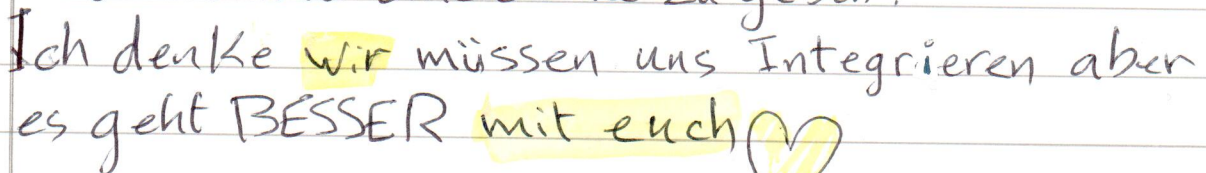 Ich denke wir müssen uns Integrieren aber
es geht BESSER mit euch